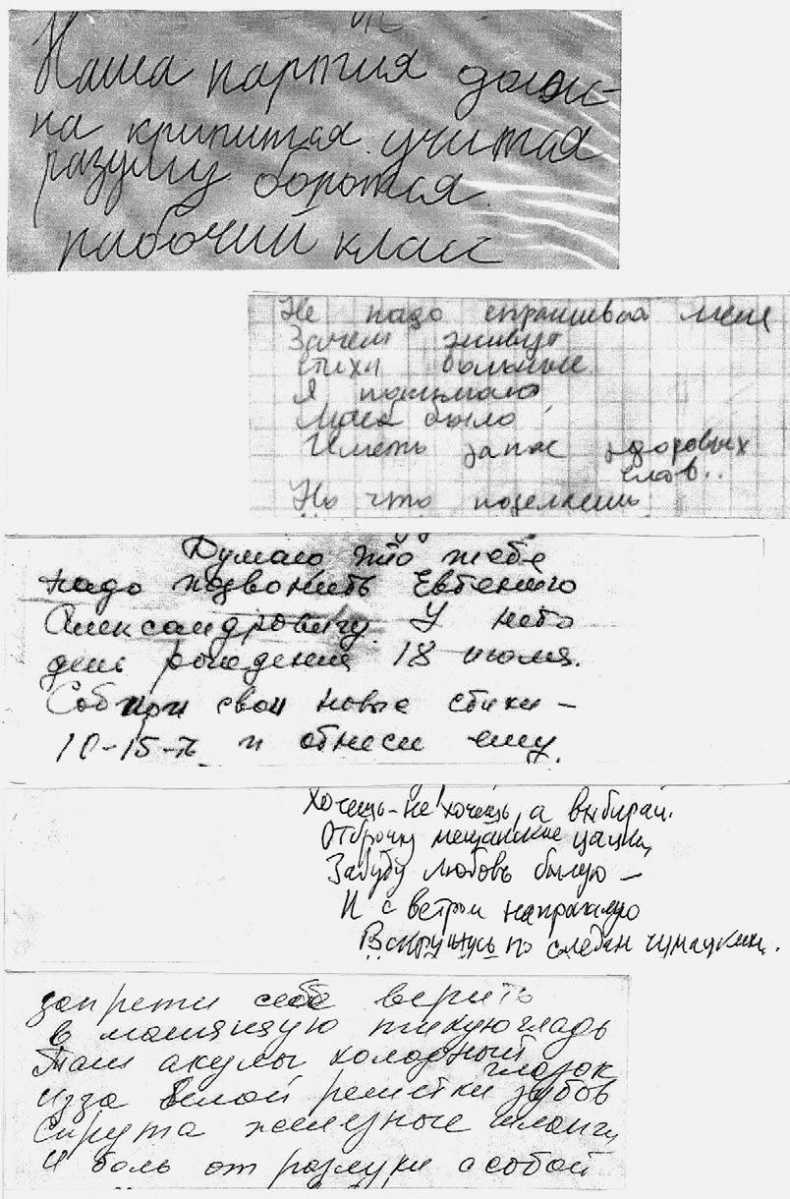 Наша партия долж-
на крипится учится
разуму боротся
рабочий класс
Не надо спрашивая меня
Зачем живут
стихи больные
Я понимаю
было
Иметь запас здоровых
слов..
Но что поделаешь
Думаю что тебе
надо позвонить Евгению
Александровичу. У него
день рождения 18 июля.
Собери свои новые стихи –
10-15-ть и отнеси ему.
Хочешь – не хочешь, а выбирай.
Отброшу мещанские цацки,
Забуду любовь былую –
И с ветром напрямую
по следам чумацким.
запрети себе верить
в тихую гладь
там акулы холодный
глазок
из за белой решетки зубов
спрута железные шланги
и боль от разлуки с собой